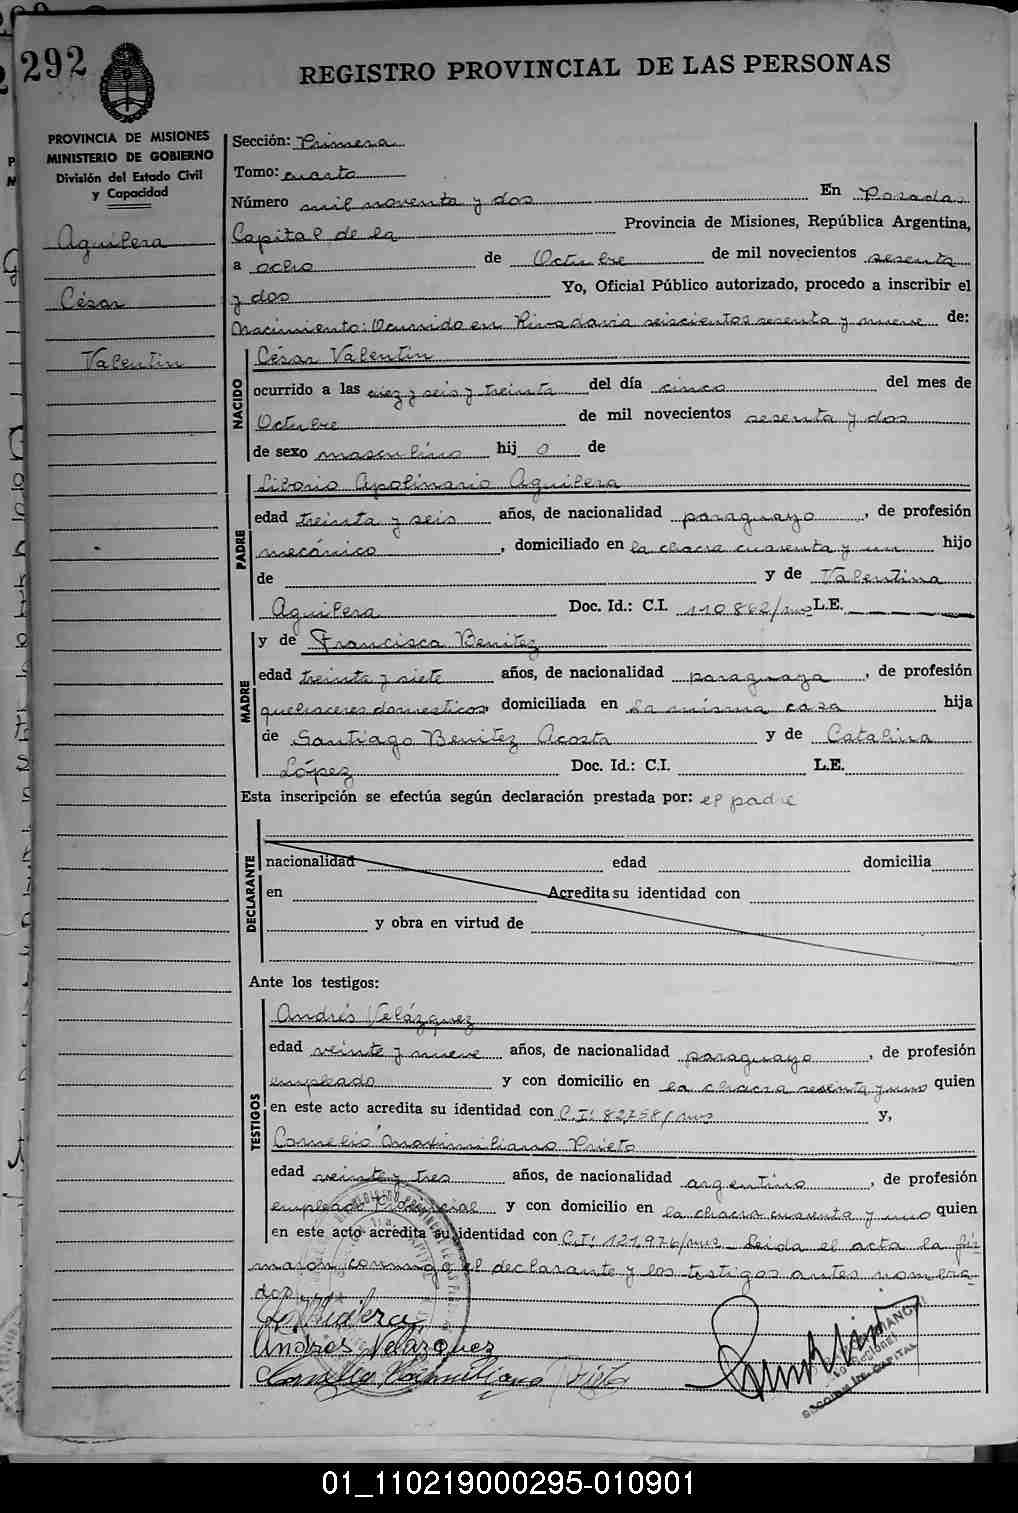 292
REGISTRO PROVINCIAL DE LAS PERSONAS
PROVINCIA DE MISIONES
MINISTERIO DE GOBIERNO
División del Estado Civil
y Capacidad
Aguilera
César
Valentín
Sección: Primera
Tomo: cuarto
Número mil noventa y dos En Posadas
Capital de la Provincia de Misiones, República Argentina,
a ocho de Octubre de mil novecientos sesenta
y dos Yo, Oficial Público autorizado, procedo a inscribir el
Nacimiento: Ocurrido en Rivadavia seiscientos sesenta y nueve de:
NACIDO
César Valentín
ocurrido a las diez y seis y treinta del día cinco del mes de
Octubre de mil novecientos sesenta y dos
de sexo masculino hij o de
PADRE
Liborio Apolinario Aguilera
edad treinta y seis años, de nacionalidad paraguayo, de profesión
mecánico, domiciliado en la chacra cuarenta y un hijo
de y de Valentina
Aguilera Doc. Id.: C.I. 110.862/mns L.E.
MADRE
y de Francisca Benitez
edad treinta y siete años, de nacionalidad paraguaya, de profesión
quehaceres domesticos, domiciliada en la misma casa hija
de Santiago Benitez Acosta y de Catalina
López Doc. Id.: C.I. L.E.
Esta inscripción se efectúa según declaración prestada por: el padre
DECLARANTE
nacionalidad edad domicilia
en Acredita su identidad con
y obra en virtud de
Ante los testigos:
TESTIGOS
Andrés Velázquez
edad veinte y nueve años, de nacionalidad paraguayo, de profesión
empleado y con domicilio en la chacra sesenta y uno quien
en este acto acredita su identidad con C.I: 82.758/mns y,
Cornelio Maximiliano Prieto
edad veinte y tres años, de nacionalidad argentino, de profesión
empleado Provincial y con domicilio en la chacra cuarenta y uno quien
en este acto acredita su identidad con C.I: 121.976/mns Leida el acta la fir
maron conmigo el declarante y los testigos antes nombra-
dos
Andres Velazquez
Cornelio Maximiliano Prieto
SECCION 1ra. CAPITAL
01_110219000295-010901